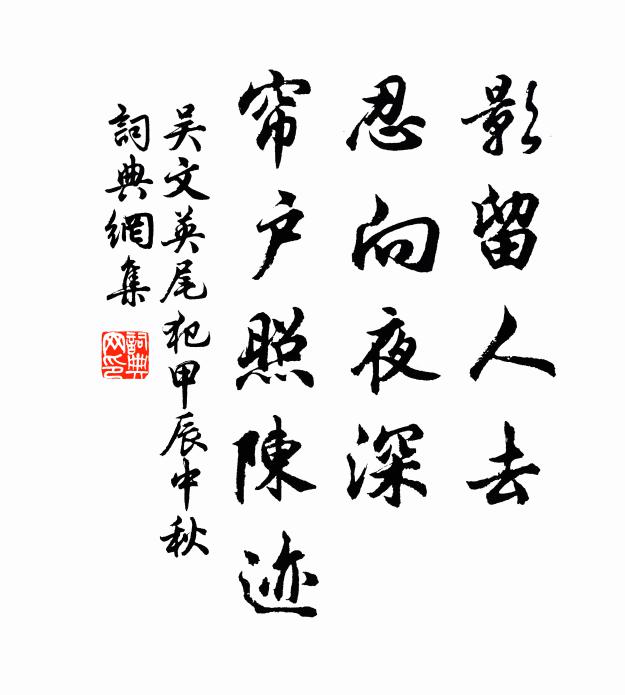 影留人去
忍向夜深
帘户照陳迹
吴文英尾犯甲辰中秋
詞典網集
詞典
网印